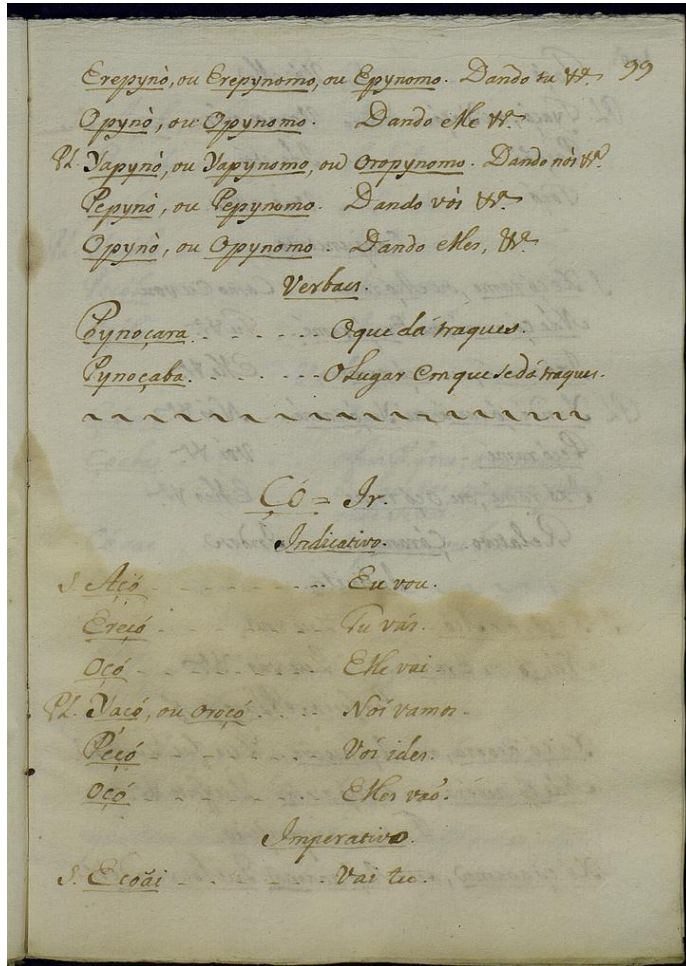 Erepynò, ou Erepynomo, ou Epynomo. Dando tu &c.ª 99
Opynò, ou Opynomo. Dando elle &c.ª
Pl. Yapynò, ou Yapynomo, ou Oropynomo. Dando nòs &c.ª
Pepynò, ou Pepynomo. Dando vós &c.ª
Opynò, ou Opynomo. Dando elles, &c.ª
Verbaes.
Pynoçara. - - - - - - O que dá traques.
Pynoçaba. - - - - - - O Lugar em que se dá traques.
Çó = Ir.
Indicativo.
S. Açó - - - - - - - - Eu vou.
Ereçó - - - - - - - - Tu vás.
Oçó - - - - - - - - Elle vai.
Pl. Yaçó, ou oroçó - - - - Nós vamos.
Peçó - - - - - - - - Vós ides.
Oçó - - - - - - - - Elles vaõ.
Imperativo.
S. Ecoãi - - - - - - - - Vai tu.